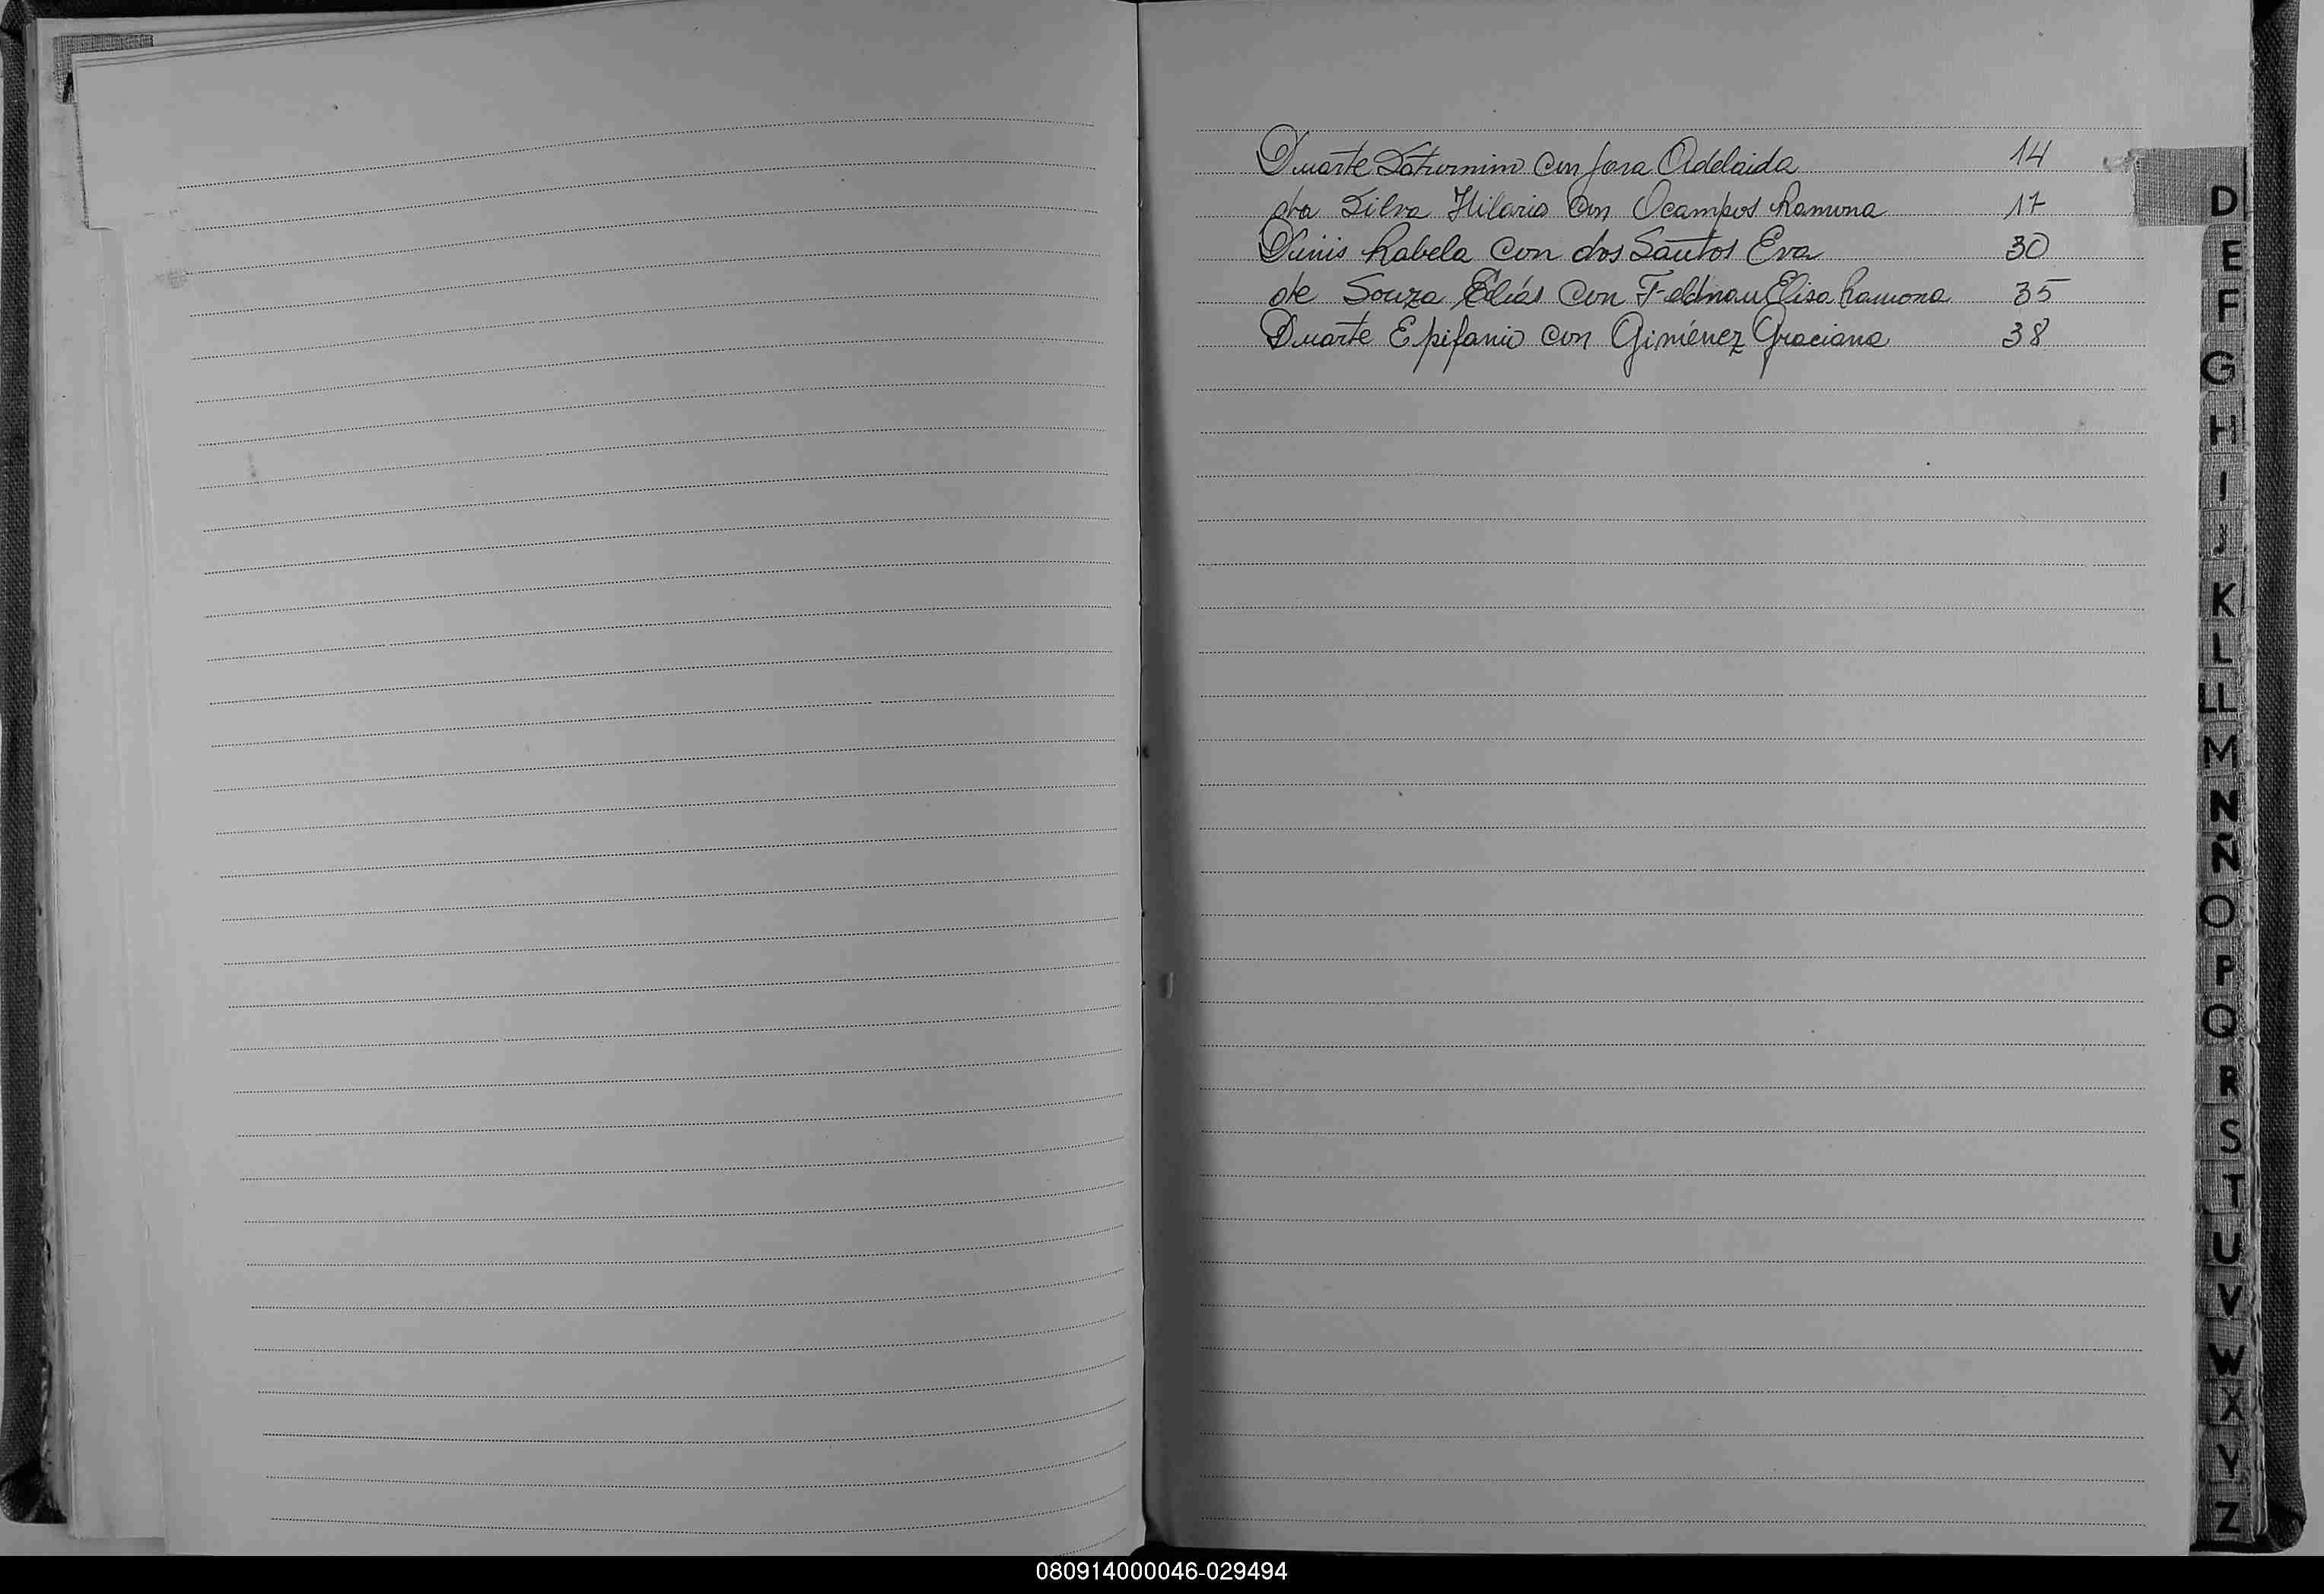 Duarte Saturnino con Jara Adelaida 14
da Silva Hilario con Ocampos Ramona 17
Rabela con dos Santos Eva 30
de Souza Elías con Elisa Ramona 35
Duarte Epifanio con Giménez Graciana 38
D
E
F
G
H
I
J
K
L
LL
M
N
Ñ
O
P
Q
R
S
T
U
V
W
X
Y
Z
080914000046-029494